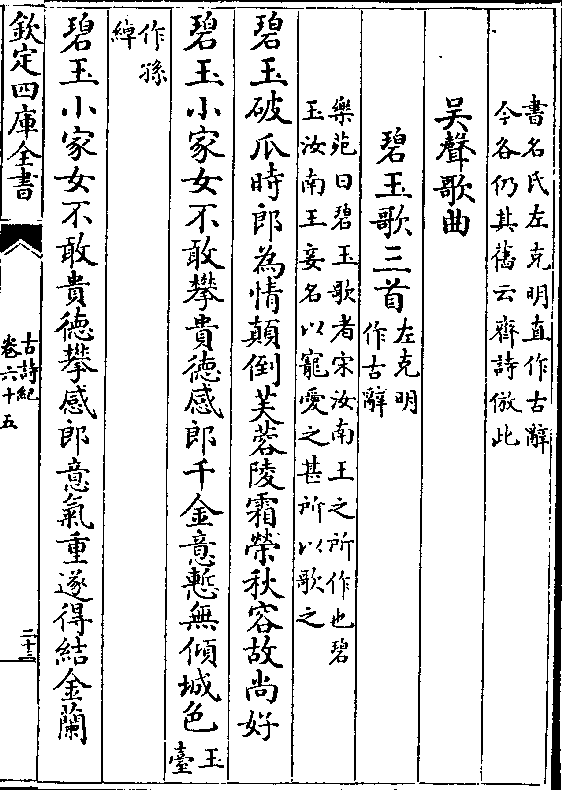 書名氏左克明直作古辭
今各仍其舊云齊詩倣此
吴聲歌曲
碧玉歌三首左克明
作古辭
樂苑曰碧玉歌者宋汝南王之所作也碧
玉汝南王妾名以寵愛之甚所以歌之
碧玉破瓜時郎為情顛倒芙蓉陵霜榮秋容故尚好
碧玉小家女不敢攀貴德感郎千金意慙無傾城色玉
臺
作孫
綽
碧玉小家女不敢貴德攀感郎意氣重遂得結金蘭
欽定四庫全書
古詩紀
卷六十五
二十三